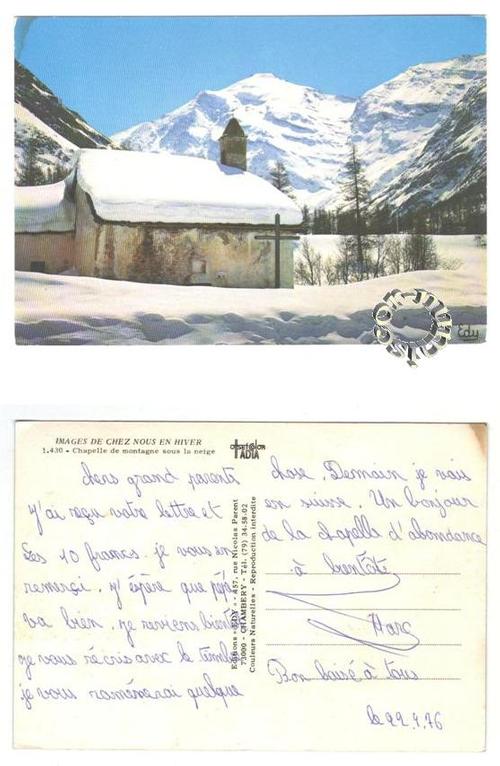 Edy
IMAGES DE CHEZ NOUS EN HIVER
1.430 - Chapelle de montagne sous la neige
offset color
IADIA
Editions « EDY » - 457, rue Nicolas Parent
73000 - CHAMBERY - Tél. (79) 34-58-02
Couleurs Naturelles - Reproduction interdite
chers grand parents
J'ai reçu votre lettre et
Les 10 francs. je vous en
remerci. J'éspère que pépé
va bien, je reviens bientôt
je vous réecris avec le timbre
je vous raménerai quelque
chose. Demain je vais
en suisse. Un bonjour
de la chapelle d'abondance
à bientôt
Marc
Bon baisé à tous
le 22.4.76